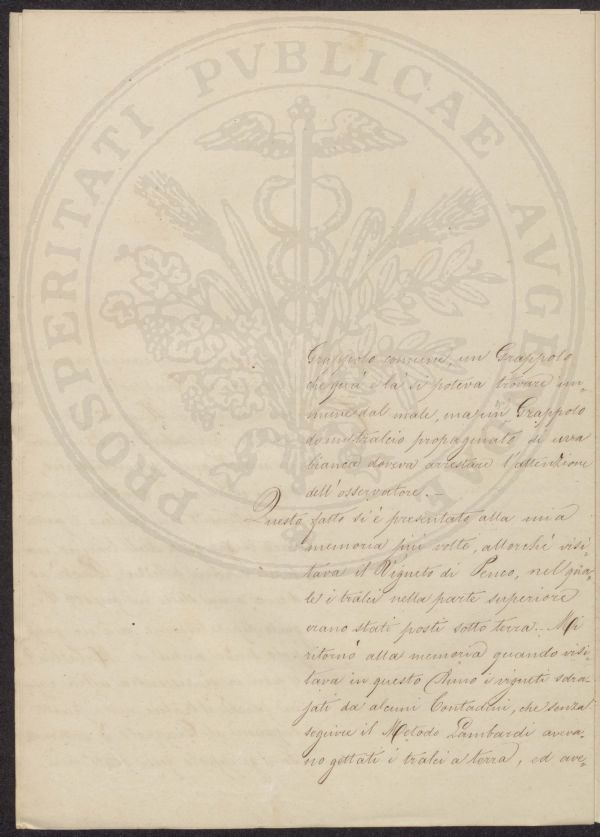 PROSPERITATI PVBLICAE AVGE
Grappolo comune, un Grappolo
che quà e là si poteva trovare im-
mune dal male, ma un Grappolo
d'un tralcio propaginato di uva
bianca doveva arrestare l'attenzione
dell'osservatore. —
Questo fatto si è presentato alla mia
memoria più volte, allorchè visi-
tava il Vigneto di Penco, nel qua-
le i tralci nella parte superiore
erano stati posti sotto terra. Mi
ritornò alla memoria quando visi-
tava in questo Anno i vigneti sdra-
jati da alcuni Contadini, che senza
seguire il Metodo Lambardi aveva-
no gettati i tralci a terra, ed ave-